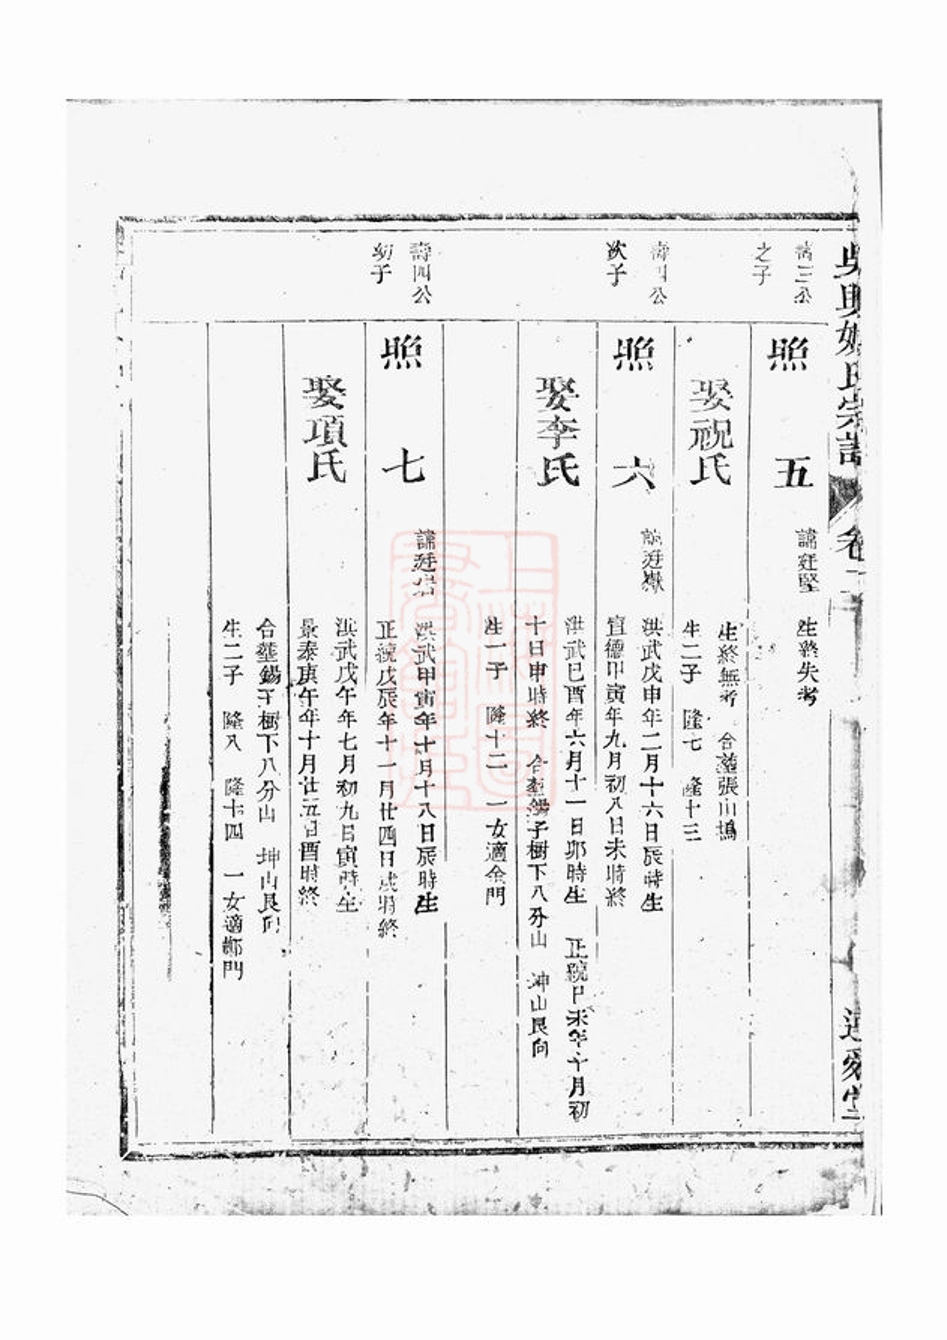 吳興姚氏宗譜
卷二
遺愛堂
壽三公
之子
照五
諱廷堅
生終失考
娶祝氏
生終無考 合葬張山塢
生二子 隆七 隆十三
壽四公
次子
照六
諱廷嶽
洪武戊申年二月十六日辰時生
宣德甲寅年九月初八日未時終
娶李氏
洪武己酉年六月十一日卯時生 正統己未年十月初
十日申時終 合葬錫子樹下八分山 坤山艮向
生一子 隆十二 一女適金門
壽四公
幼子
照七
諱廷
洪武甲寅年十月十八日辰時生
正統戊辰年十一月廿四日戌時終
娶項氏
洪武戊午年七月初九日寅時生
景泰庚午年十月廿五日酉時終
合葬錫子樹下八分山 坤山艮向
生二子 隆八 隆十四 一女適鄭門